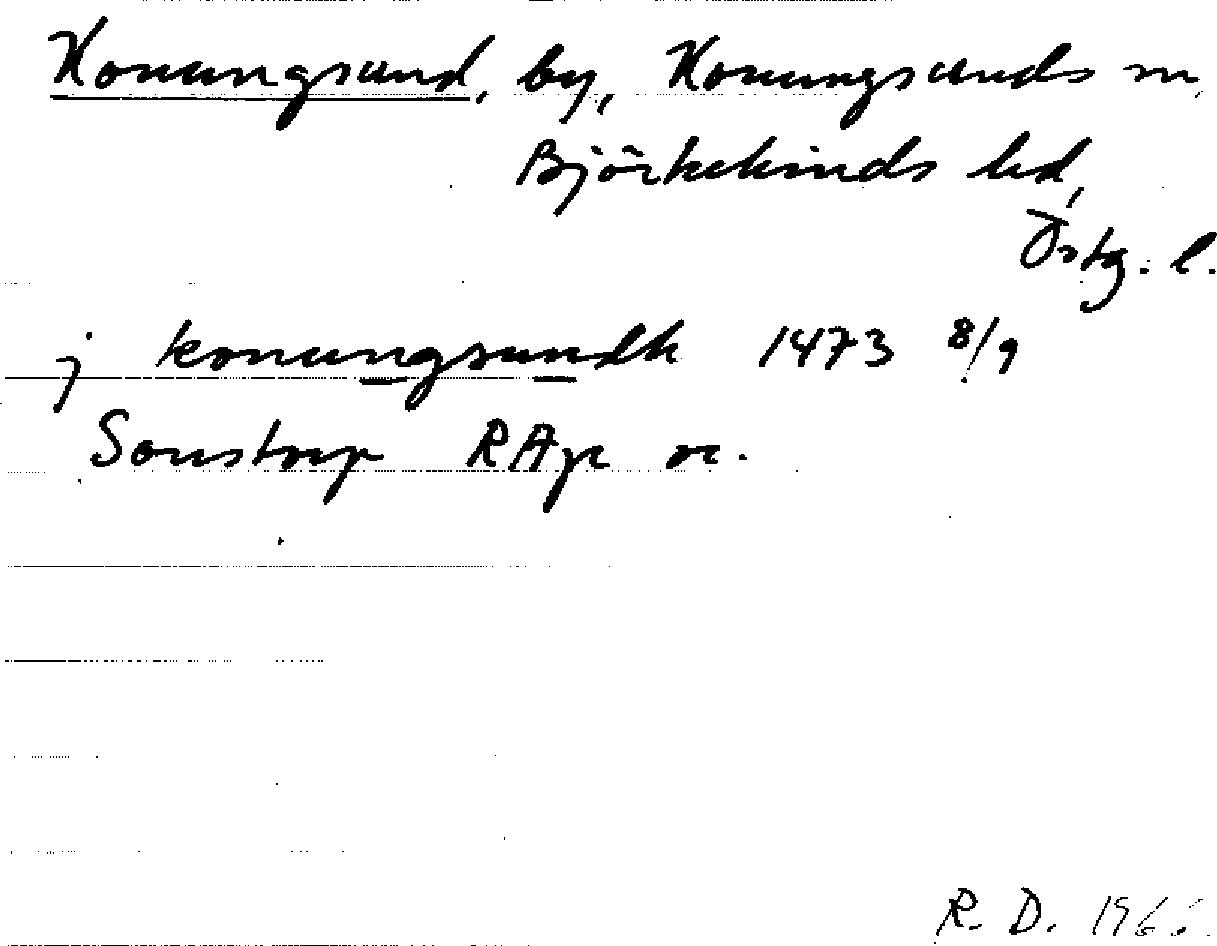 Konungsund, by, Konungsunds sn,
Björkekinds hd,
Östg. l.
j konungsundh 1473 8/9
Sonstorp RAp or.
R. D. 1966.